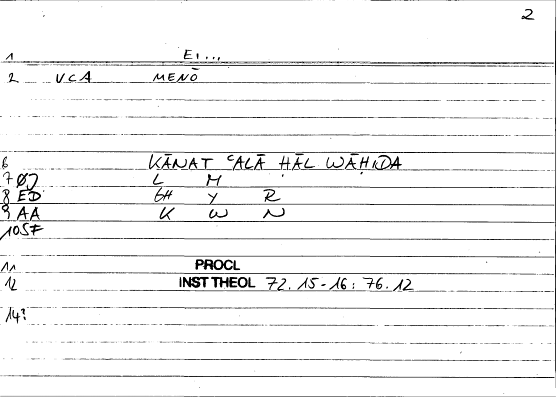 2
1 EI...
2 VCA MENŌ
6 KĀNAT ʿALĀ ḤĀL WĀḤIDA
7 ØJ L M '
8 ED GH Y R
9 AA K W N
10 SF
11 PROCL
12 INST THEOL 72.15-16: 76.12
14?